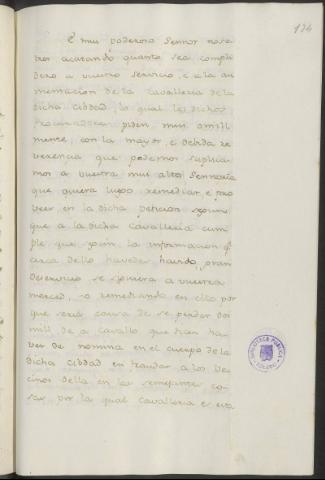 124
E mui poderoso Sennor noso-
tros acatando quanto sea compli
dero a vuestro servicio, e a la au
mentacion de la cavalleria de la
dicha Cibdad, lo qual los dichos
Procuradores piden, mui omill
mente, con la mayor, e debida re
verencia que podemos suplica
mos a vuestra mui alta Sennoria
que quiera luego remediar, e pro
veer en la dicha peticion segunt
que a la dicha Cavalleria cum
ple que segun la informacion q.e
cerca dello havedes havido, gran
deservicio se seguiera a vuestra
merced, no remediando en ello por
que seria causa de se perder dos
mill de a cavallo que han ha
ver de nomina en el cuerpo de la
dicha Cibdad en fraudar a los Ve
cinos della en las semejantes co-
sas, por la qual Cavalleria es esta
BIBLIOTECA PUBLICA
TOLEDO